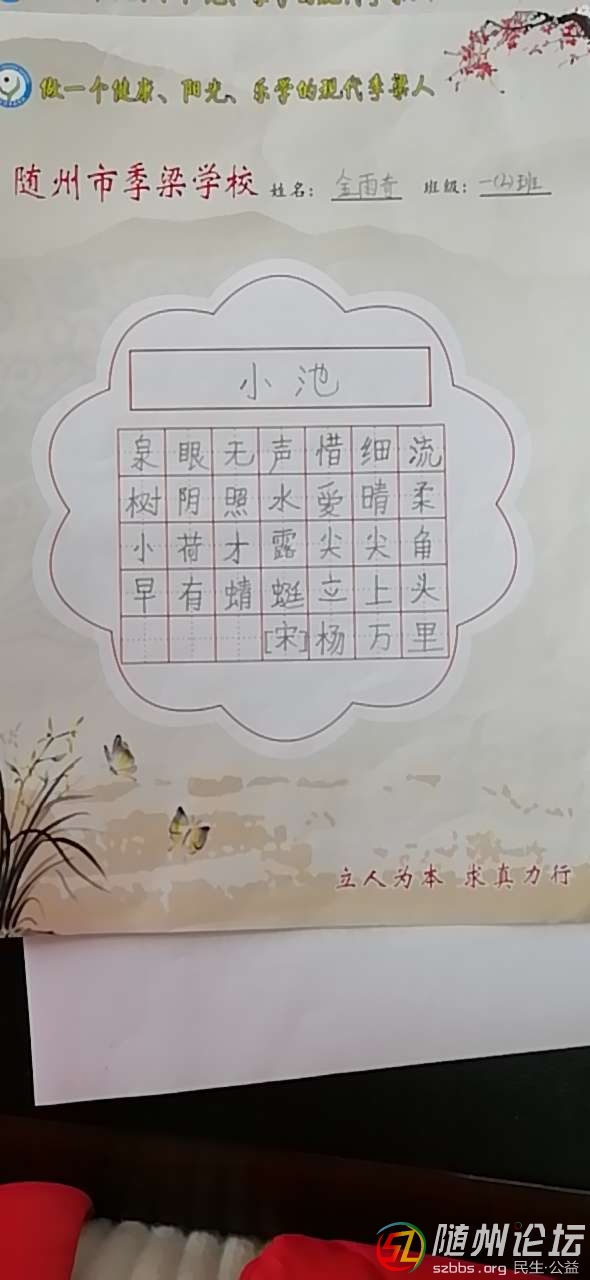 做一个健康、阳光、乐学的现代季梁人
随州市季梁学校 姓名： 金雨奇 班级： 一(2)班
小池
泉眼无声惜细流
树阴照水爱晴柔
小荷才露尖尖角
早有蜻蜓立上头
[宋]杨万里
立人为本 求真力行
随州论坛
szbbs.org 民生·公益